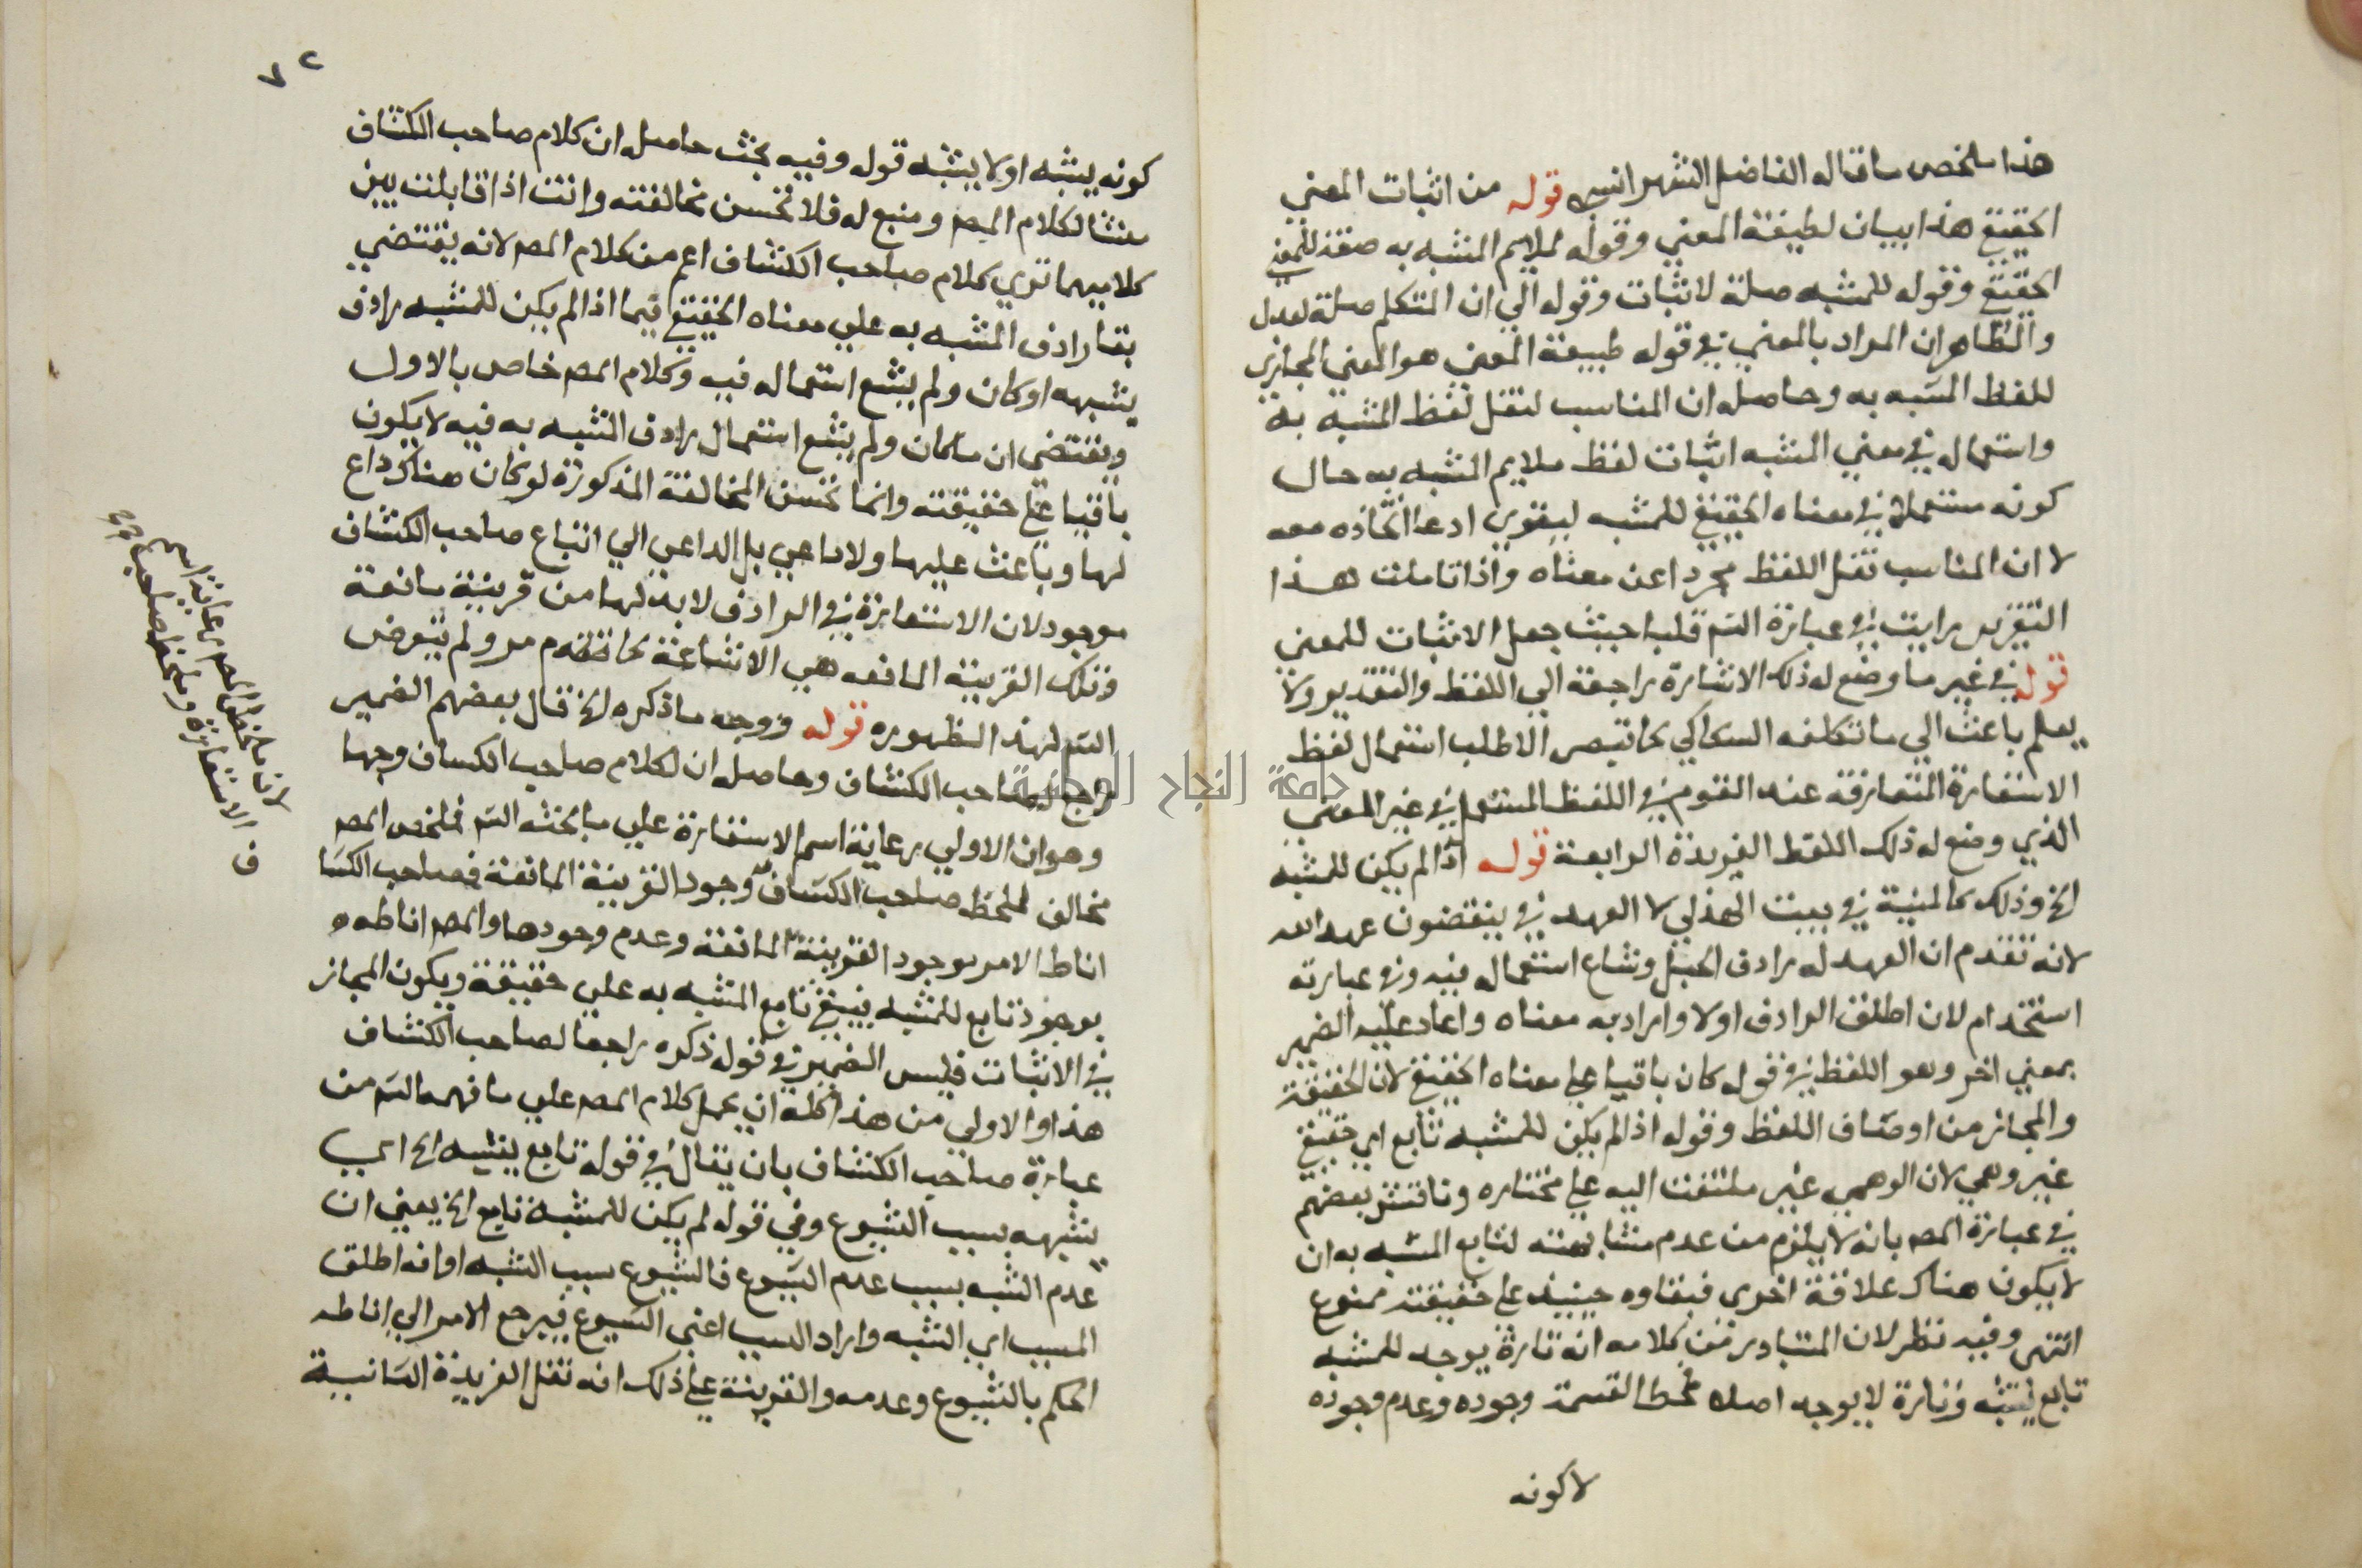 هذا ملخص ما قاله الفاضل الشهرانسى قوله من اثبات المعني
الحقيقي هذا بيان لطيفة المعني وقوله لملايم المشبه به صفة للمعني
الحقيقي وقوله للمشبه صلة لاثبات وقوله الي ان المتكلم صلة لعدل
والظاهر ان المراد بالمعني في قوله طبيعة المعنى هو المعنى المجازي
للفظ المشبه به وحاصله ان المناسب لنقل لفظ المشبه به
واستعماله في معني المشبه اثبات لفظ ملايم المشبه به حال
كونه مستعملا في معناه الحقيقي للمشبه ليقوي ادعا اتحاده معه
لا ان المناسب نقل اللفظ مجردا عن معناه واذا تاملت هذا
التقرير رايت في عبارة الشم قلبا حيث جعل الاثبات للمعني
قوله في غير ما وضع له ذلك الاشارة راجعة الي اللفظ والتقدير ولا
يعلم باعث الي ما تكلفه السكاكي كما تيصر الا طلب استعمال لفظ
الاستعارة المتعارفة عند القوم في اللفظ المستعمل في غير المعنى
الذي وضع له ذلك اللفظ الفريدة الرابعة قوله اذا لم يكن للمشبه
الخ وذلك كالمنية في بيت الهذلي لا العهد في ينقضون عهد الله
لانه تقدم ان العهد له رادف الحبل وشاع استعماله فيه وفي عبارته
استخدام لان اطلق الرادف اولا واراد به معناه واعاد عليه الضمير
بمعني اخر وهو اللفظ في قوله كان باقيا على معناه الحقيقي لان الحقيقة
والمجاز من اوصاف اللفظ وقوله اذا لم يكن للمشبه تابع اي حقيقي
غير وهمي لان الوهمي غير ملتفت اليه على مختاره وناقش بعضهم
في عبارة المص بانه لا يلزم من عدم مشابهته لتابع المشبه به ان
لا يكون هناك علاقة اخرى فبقاوه حينيذ على حقيقته ممنوع
انتهى وفيه نظر لان المتبادر من كلامه انه تارة يوجد للمشبه
تابع يشبه وتارة لا يوجد اصلا فمحط القسمة وجوده وعدم وجوده
لا كونه
٧٢
كونه يشبه او لا يشبه قوله وفيه بحث حاصله ان كلام صاحب الكشاف
منشا لكلام المص ومنبع له فلا تحسن مخالفته وانت اذا قابلت بين
كلاميهما تري كلام صاحب الكشاف اعم من كلام المص لانه يقتضي
بقا رادف المشبه به علي معناه الحقيقي فيما اذا لم يكن للمشبه رادف
يشبهه او كان ولم يشع استعماله فيه وكلام المص خاص بالاول
ويقتضي ان ما كان ولم يشع استعمال رادف المشبه به فيه لا يكون
باقيا على حقيقته وانما تحسن المخالفة المذكورة لو كان هناك داع
لها وباعث عليها ولا داعي بل الداعي الي اتباع صاحب الكشاف
موجود لان الاستعارة في الرادف لا بد لها من قرينة مانعة
وتلك القرينة المانعه هي الاشاعة كما تقدم مر ولم يتعرض
الشم لهذا لظهوره قوله ووجه ما ذكره الخ قال بعضهم الضمير
راجع لصاحب الكشاف وحاصله ان لكلام صاحب الكساف وجها
وهو ان الاولي رعاية اسم الاستعارة علي ما بحثه الشم فملخص المص
مخالف لملحظ صاحب الكشاف وجود القرينة المانعة فصاحب الكشا
اناط الامر بوجود القرينة المانعة وعدم وجودها والمص اناطه
بوجود تابع للمشبه فيبقي تابع المشبه به علي حقيقة ويكون المجاز
في الاثبات فليس الضمير في قوله ذكره راجعا لصاحب الكشاف
هذا والاولي من هذا كله ان يحمل كلام المص علي ما فهم الشم من
عبارة صاحب الكشاف بان يقال في قوله تابع يشبه الخ اي
يشبهه بسبب الشيوع وفي قوله لم يكن للمشبه تابع الخ يعني ان
عدم الشبه بسبب عدم الشيوع فالشيوع سبب الشبه او انه اطلق
المسبب اي الشبه واراد السبب اعني الشيوع فيرجع الامر الي اناطه
الحكم بالشيوع وعدمه والقرينة على ذلك انه نقل الفريدة الثانية
لان ملخص المص رعاية اسم
الاستعارة وملحظ صاحب
ف
جامعة النجاح الوطنية